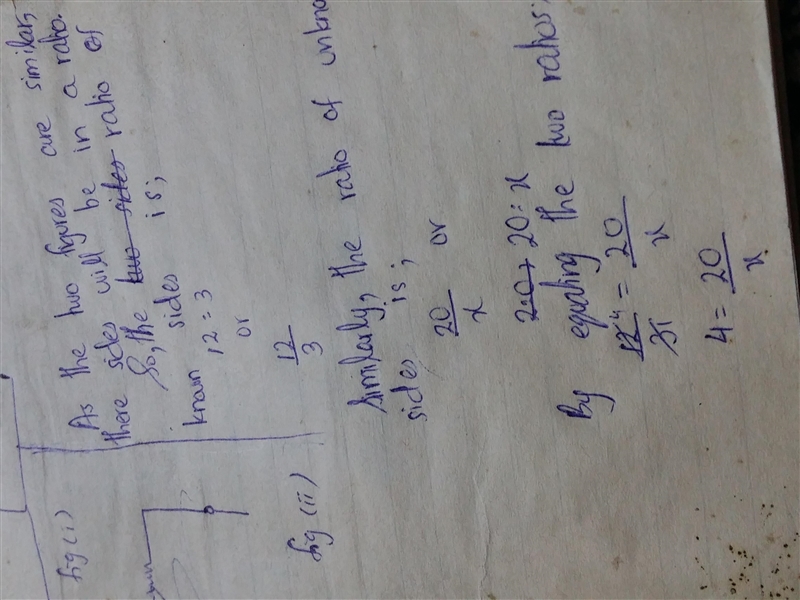 fig (i)
As the two figures are similar,
there sides will be in a ratio.
So, the two sides ratio of
known sides is;
12 : 3
or
12
3
fig (ii)
Similarly, the ratio of
sides is;
20 or
x
20 → 20 : x
By equating the two ratios;
12 4 = 20
3 1 x
4 = 20
x